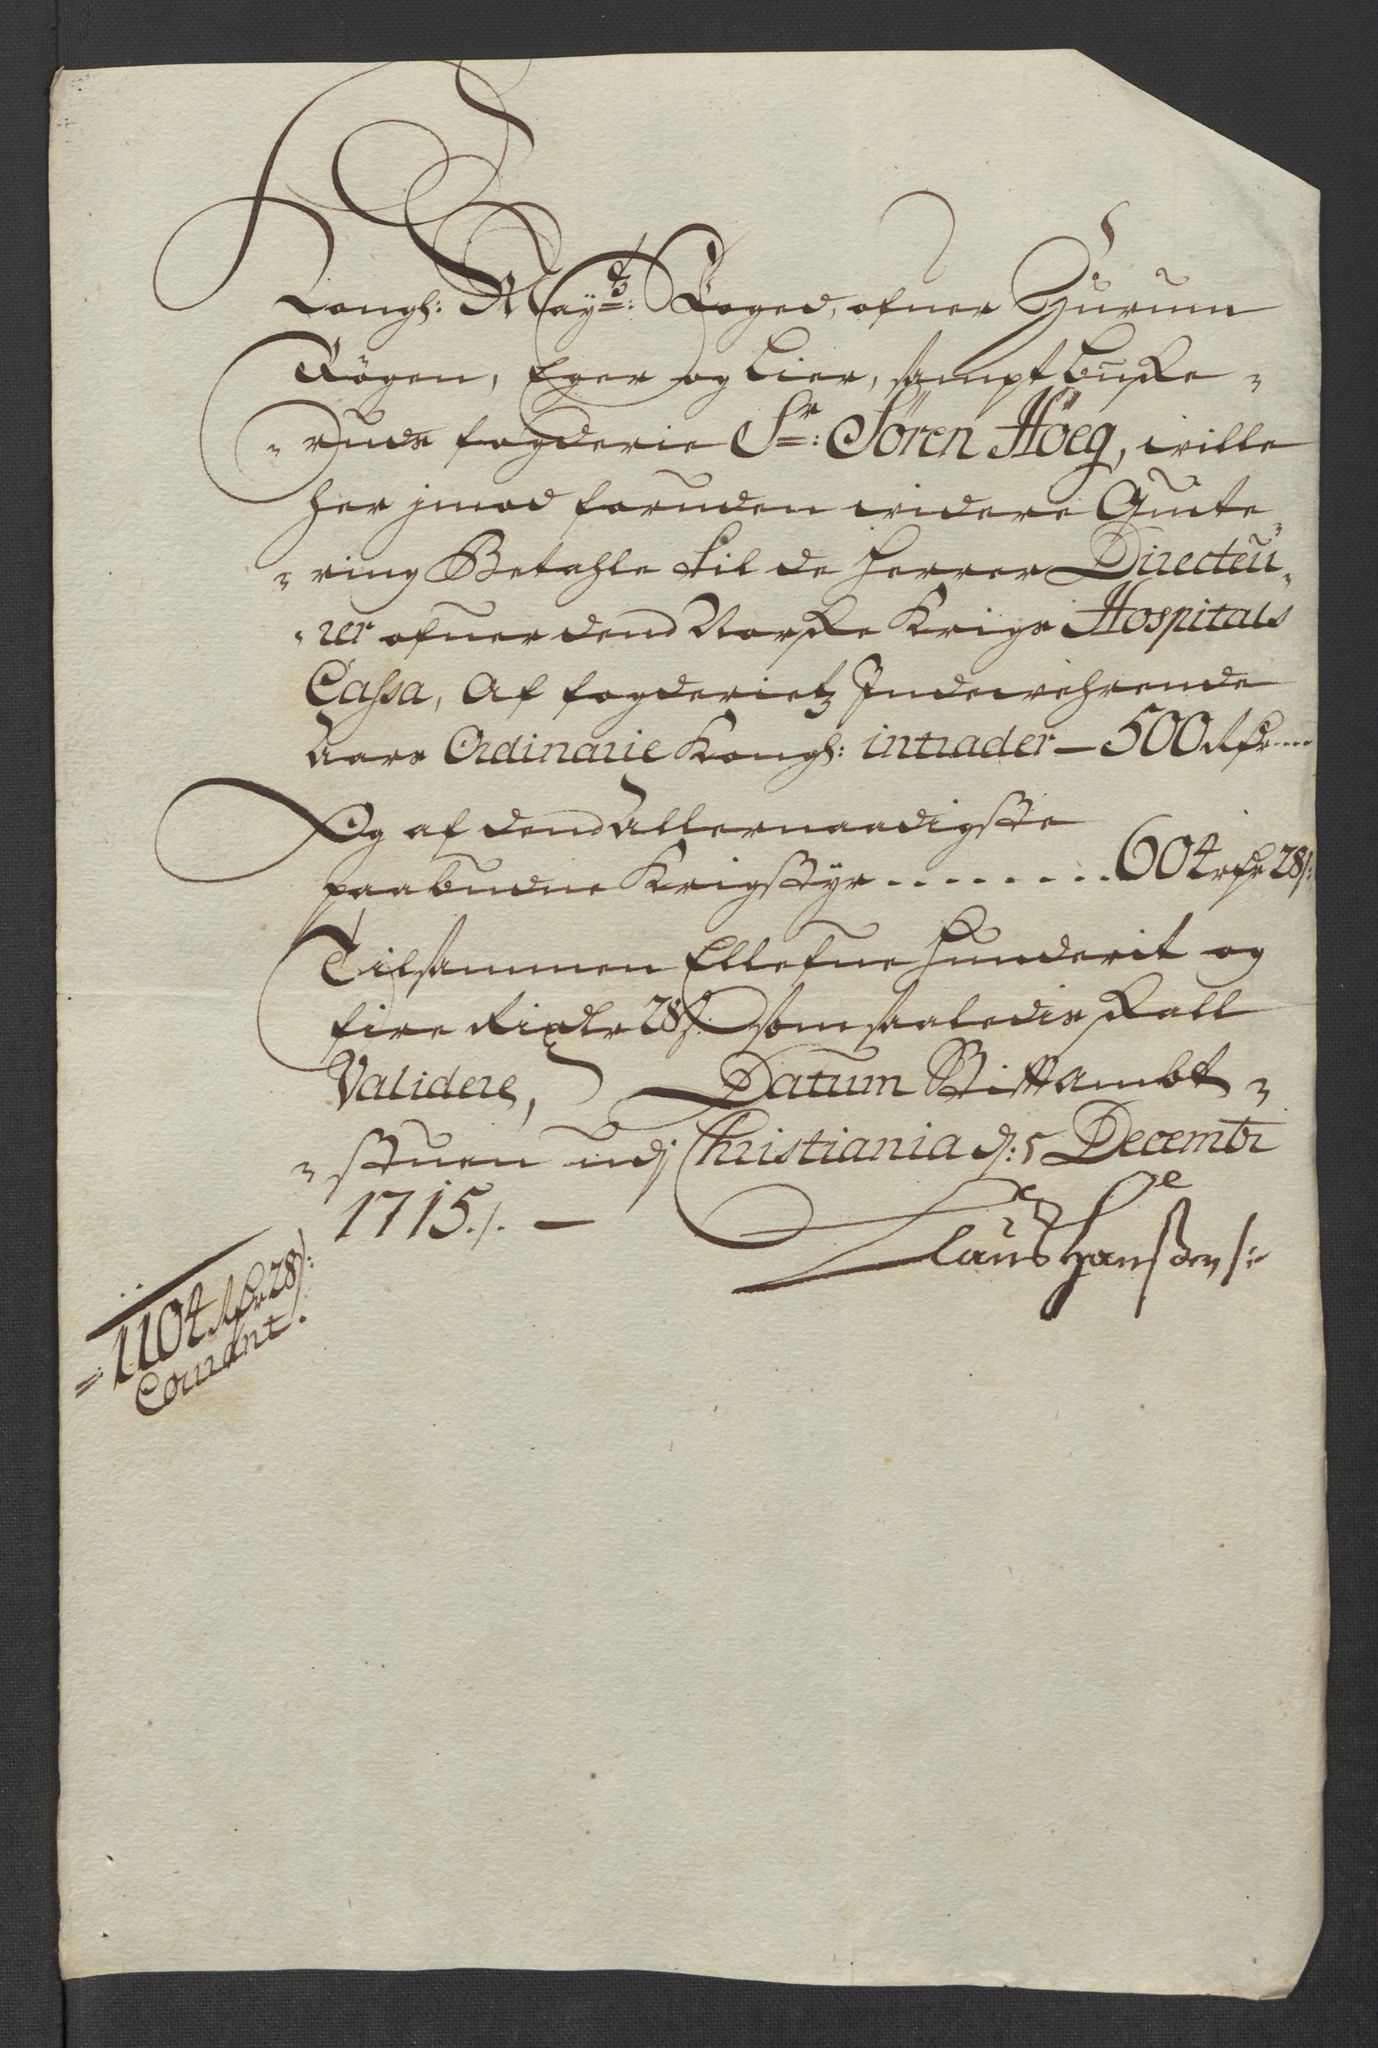 Kongl: Mayts: Foged, ofuer Hurum
Rögen, Eger og Lier, sampt buske-
-ruds fogderie Sr: Sören Höeg, wille
her jmod foruden widere Quite-
-ring Betahle til de herrer Directeu-
-rer ofuer dend Norske Krigs Hospitals
Cassa, Af fogderietz Indewehrende
Aars Ordinarie Kongl: intrader — 500 Rdr
Og af dend Allernaadigste
paabudne Krigstyr ......... 604 rdr 28 s:
Tilsammen Ellefue hunderit og
fire Rixdlr 28 s: som saaledis skall
Validere, Datum Stiftambt-
-stuen udj Christiania d: 5 Decembr
1715 ./. —
Claus Hanssen
= 1104 Rdr 28 s:
Courant.